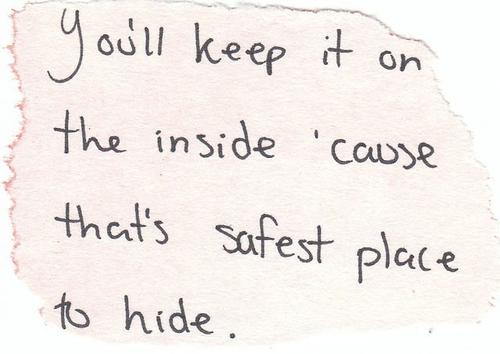 You'll keep it on
the inside 'cause
that's safest place
to hide.